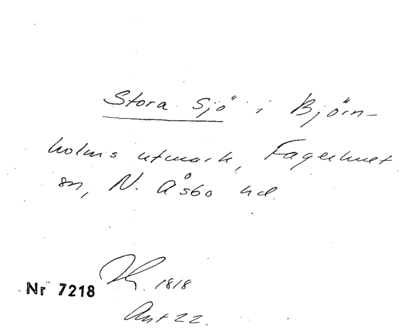 Stora Sjö i Björn-
holms utmark, Fagerhult
sn, N. Åsbo hd
1818
Nr 7218
Akt 22.